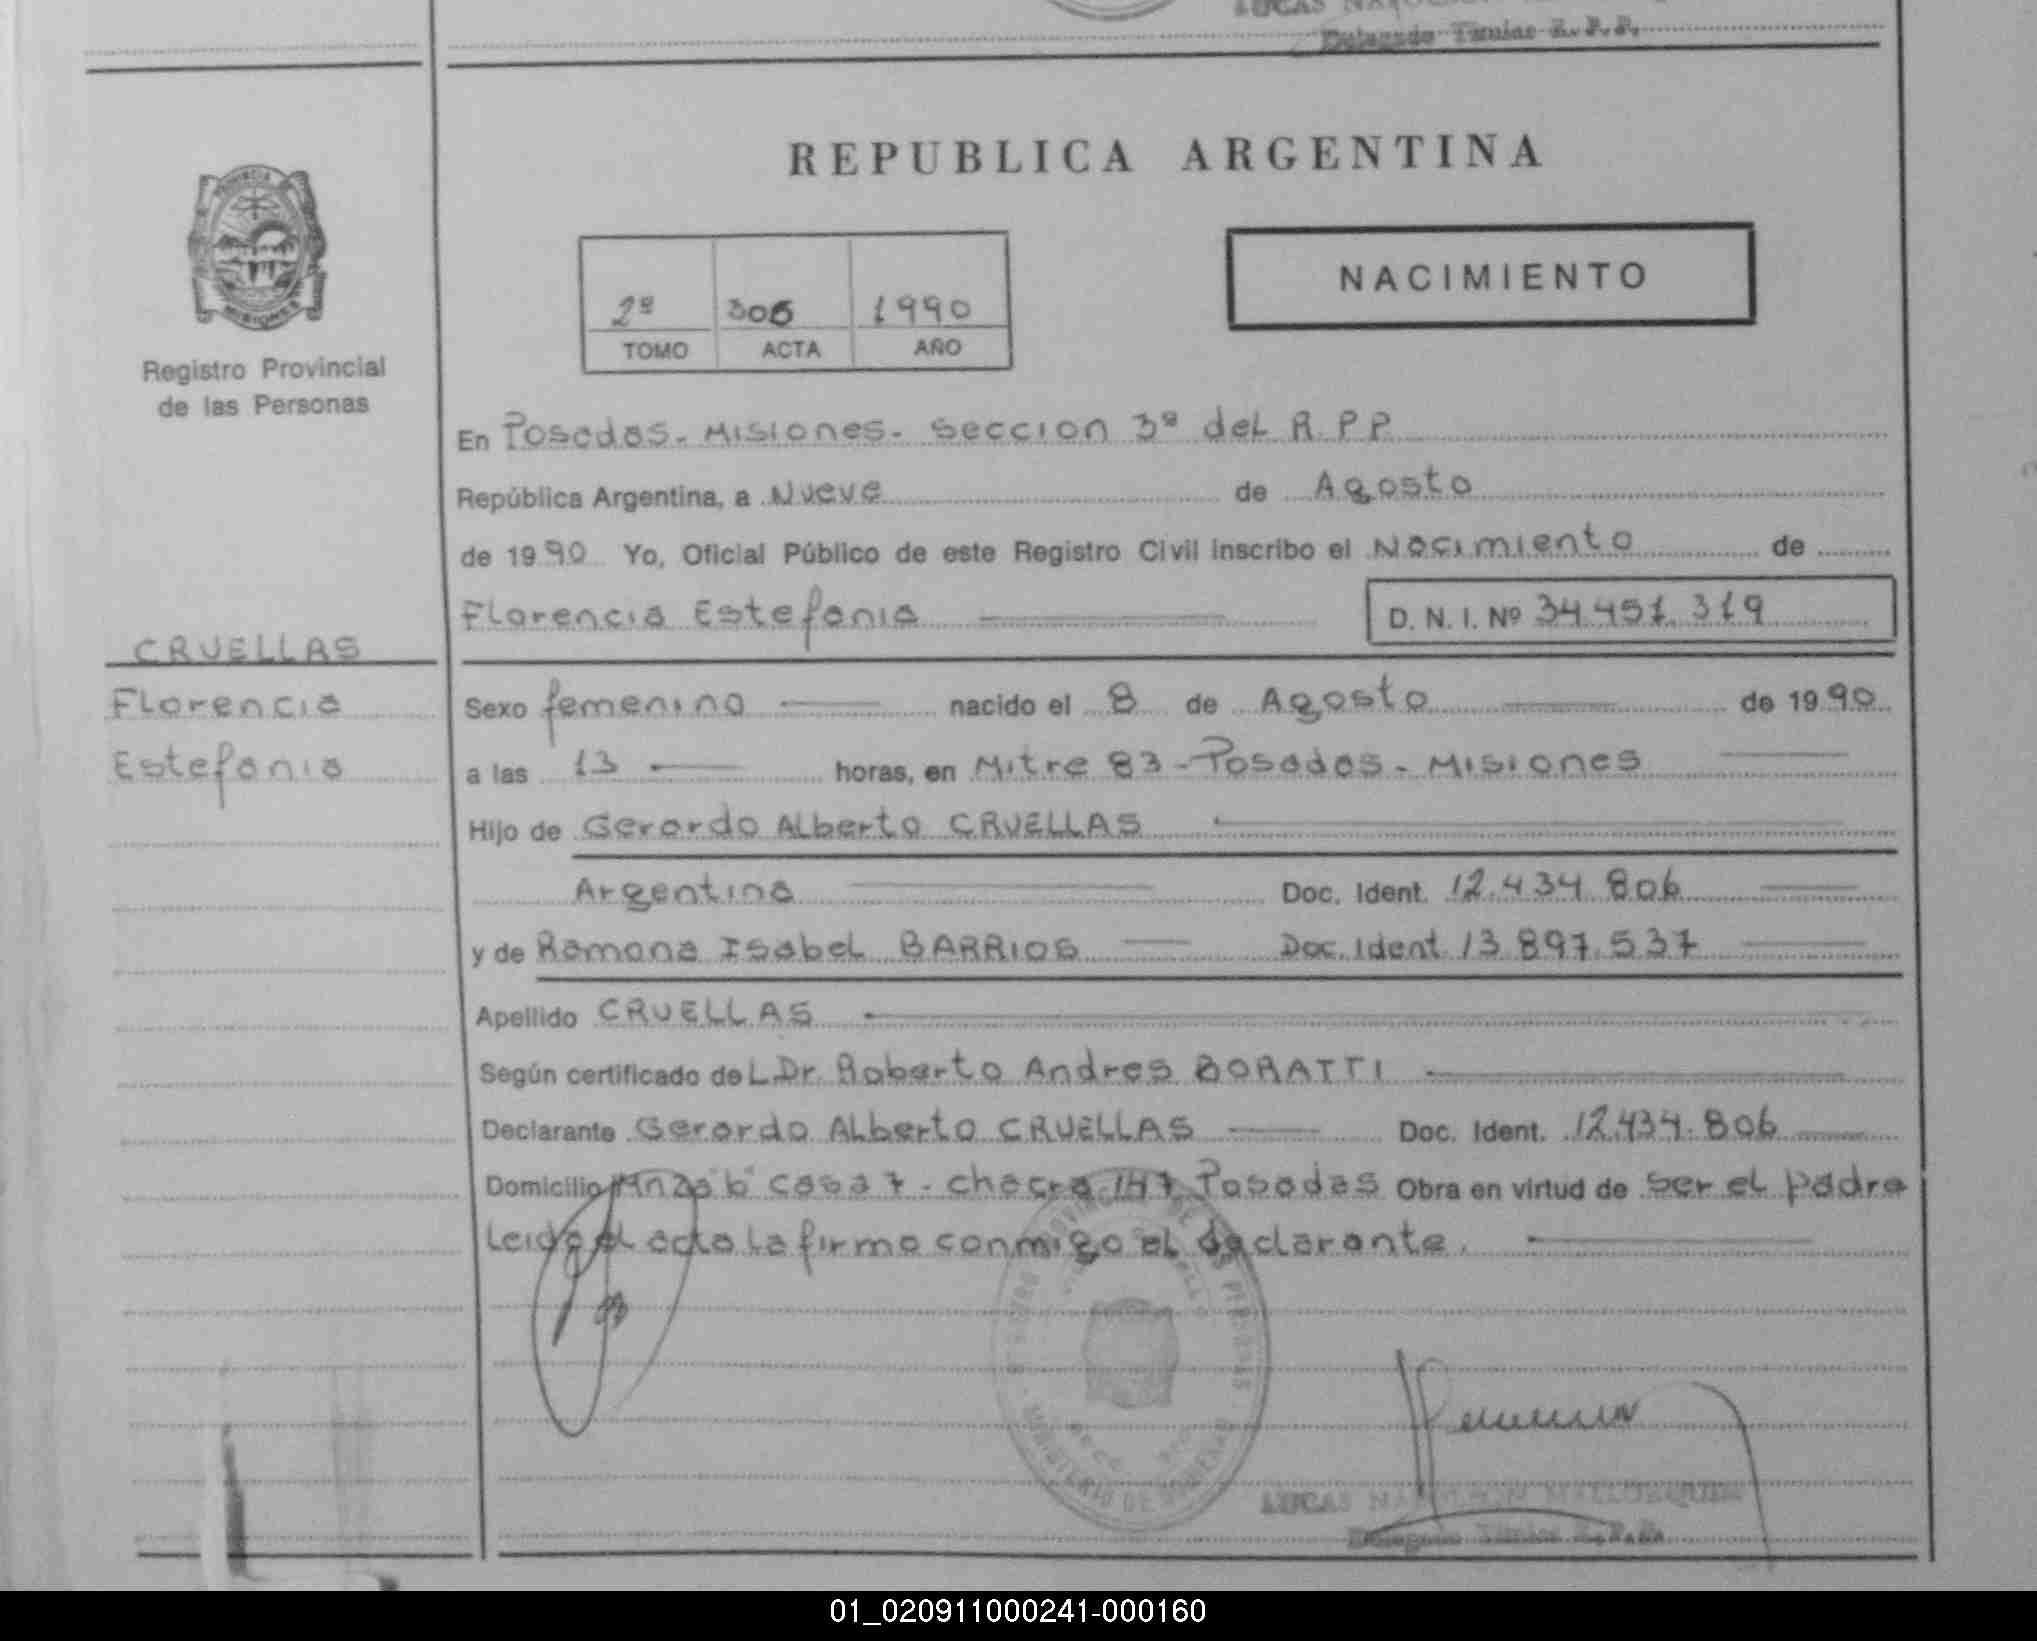 LUCAS
Delegado Titular R.P.P.
REPUBLICA ARGENTINA
PROVINCIA
MISIONES
Registro Provincial
de las Personas
NACIMIENTO
2º 306 1990
TOMO ACTA AÑO
En Posadas-Misiones-Seccion 3º del R.P.P.
República Argentina, a Nueve de Agosto
de 1990 Yo, Oficial Público de este Registro Civil inscribo el Nacimiento de
Florencia Estefania D. N. I. Nº 34.451.319
CRUELLAS
Florencia
Estefania
Sexo femenino nacido el 8 de Agosto de 1990
a las 13 horas, en Mitre 83-Posadas-Misiones
Hijo de Gerardo Alberto CRUELLAS
Argentina Doc. Ident. 12.434.806
y de Ramona Isabel BARRIOS Doc. Ident 13.897.537
Apellido CRUELLAS
Según certificado deL Dr. Roberto Andres BORATTI
Declarante Gerardo Alberto CRUELLAS Doc. Ident. 12.434.806
Domicilio Mnza "b" casa 7-chacra 147 Posadas Obra en virtud de ser el padre
Leida el acta la firma conmigo el declarante.
REGISTRO PROVINCIAL DE LAS PERSONAS
MINISTERIO DE GOBIERNO
LUCAS NAPOLEON
Delegado Titular R.P.P.
01_020911000241-000160